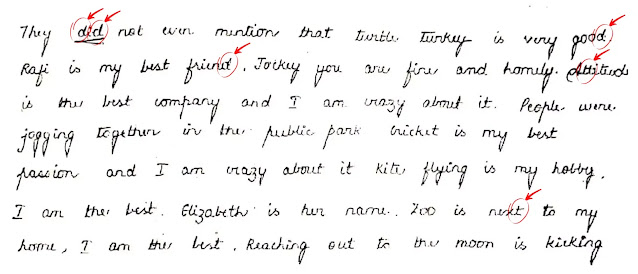 They did not even mention that turtle Turkey is very good.
Rafi is my best friend. Jockey you are fine and homely. Attitude
is the best company and I am crazy about it. People were
jogging together in the public park cricket is my best
passion and I am crazy about it kite flying is my hobby.
I am the best. Elizabeth is her name. Zoo is next to my
home. I am the best. Reaching out to the moon is kicking